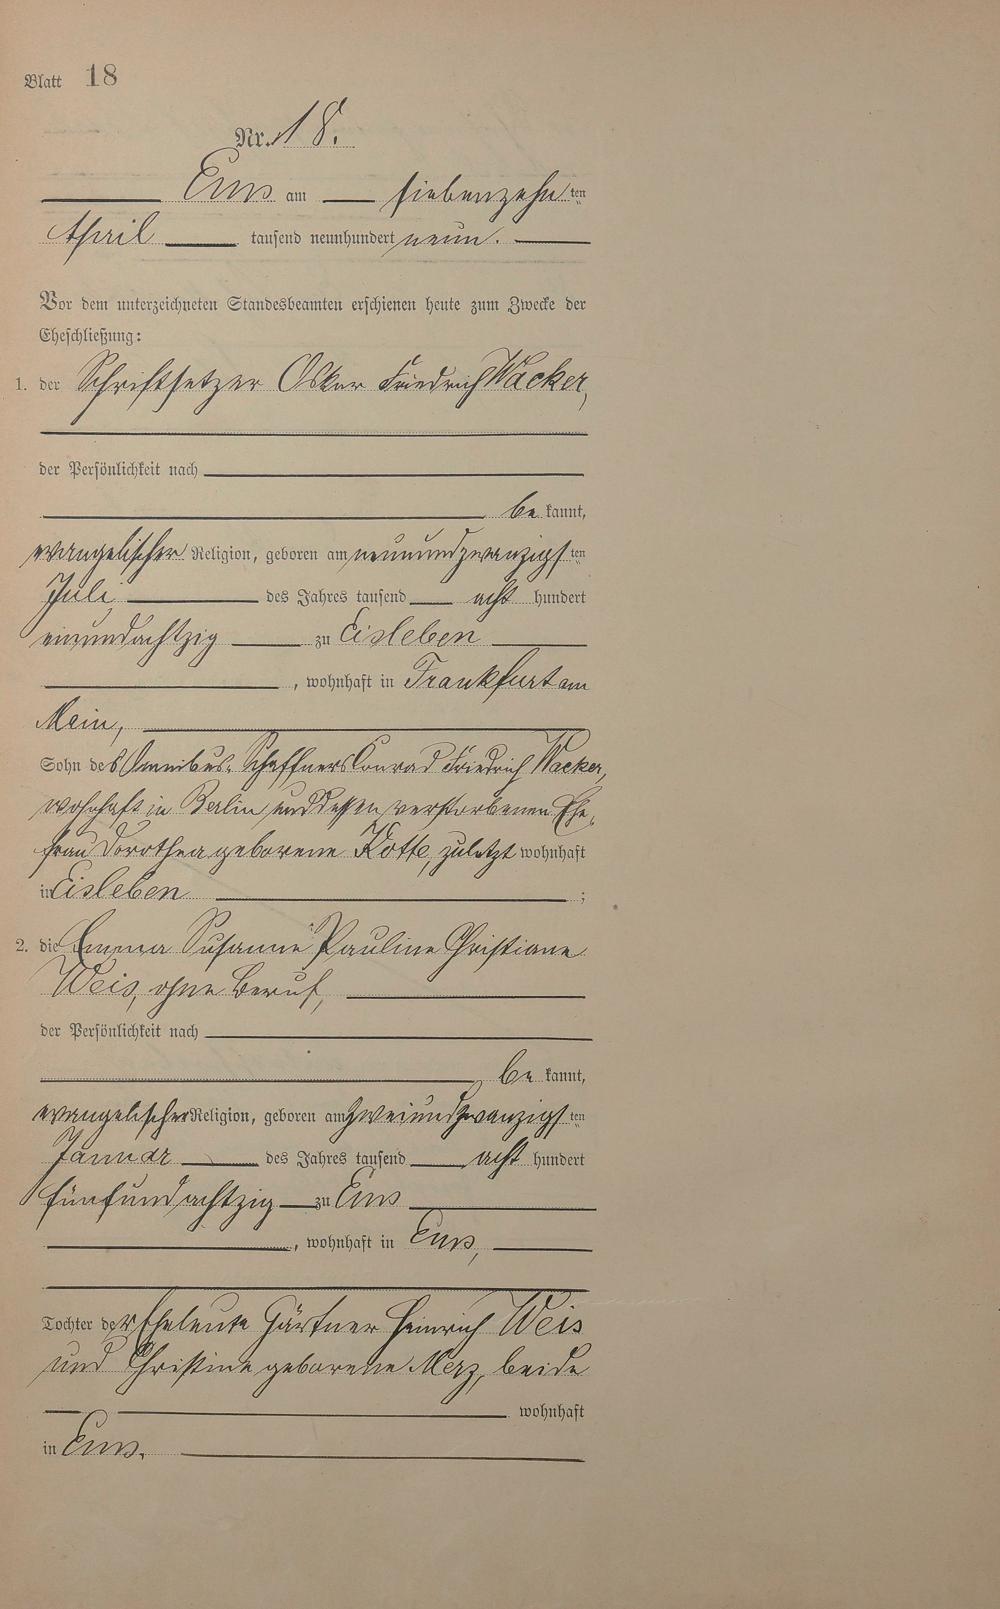 Blatt 18
Nr. 18.
Ems am siebenzehnten
April tausend neunhundert neun.
Vor dem unterzeichneten Standesbeamten erschienen heute zum Zwecke der
Eheschließung:
1. der Schriftsetzer Oskar Friedrich Wacker,
der Persönlichkeit nach
be kannt,
evangelischer Religion, geboren am neunundzwanzigsten
Juli des Jahres tausend acht hundert
einundachtzig zu Eisleben
, wohnhaft in Frankfurt am
Main,
Sohn des Omnibus-Schaffners Conrad Friedrich Wacker,
wohnhaft in Berlin und dessen verstorbenen Ehe-
frau Dorothea geborene Kotte, zuletzt wohnhaft
in Eisleben ;
2. die Emma Susanne Pauline Christiane
Weis, ohne Beruf,
der Persönlichkeit nach
be kannt,
evangelischer Religion, geboren am zweiundzwanzigsten
Januar des Jahres tausend acht hundert
fünfundachtzig zu Ems
, wohnhaft in Ems,
Tochter der Eheleute Gärtner Heinrich Weis
und Christine geborene Merz, beide
wohnhaft
in Ems.